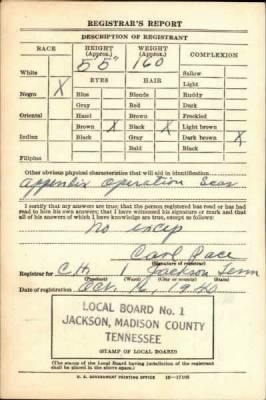 REGISTRAR'S REPORT
DESCRIPTION OF REGISTRANT
RACE HEIGHT (Approx.) WEIGHT (Approx.) COMPLEXION
5 5" 160
White Sallow
EYES HAIR Light
Negro X Blue Blonde Ruddy
Gray Red Dark
Oriental Hazel Brown Freckled
Brown X Black X Light brown
Indian Black Gray Dark brown X
Bald Black
Filipino
Other obvious physical characteristics that will aid in identification
Appendix Operation Scar
I certify that my answers are true; that the person registered has read or has had
read to him his own answers; that I have witnessed his signature or mark and that
all of his answers of which I have knowledge are true, except as follows:
no
Carl Pace
(Signature of registrar)
Registrar for C.H. 1 Jackson Tenn
(Precinct) (Ward) (City or County) (State)
Date of registration Oct. 16, 1940
LOCAL BOARD No. 1
JACKSON, MADISON COUNTY
TENNESSEE
(STAMP OF LOCAL BOARD)
(The stamp of the Local Board having jurisdiction of the registrant
shall be placed in the above space.)
U. S. GOVERNMENT PRINTING OFFICE